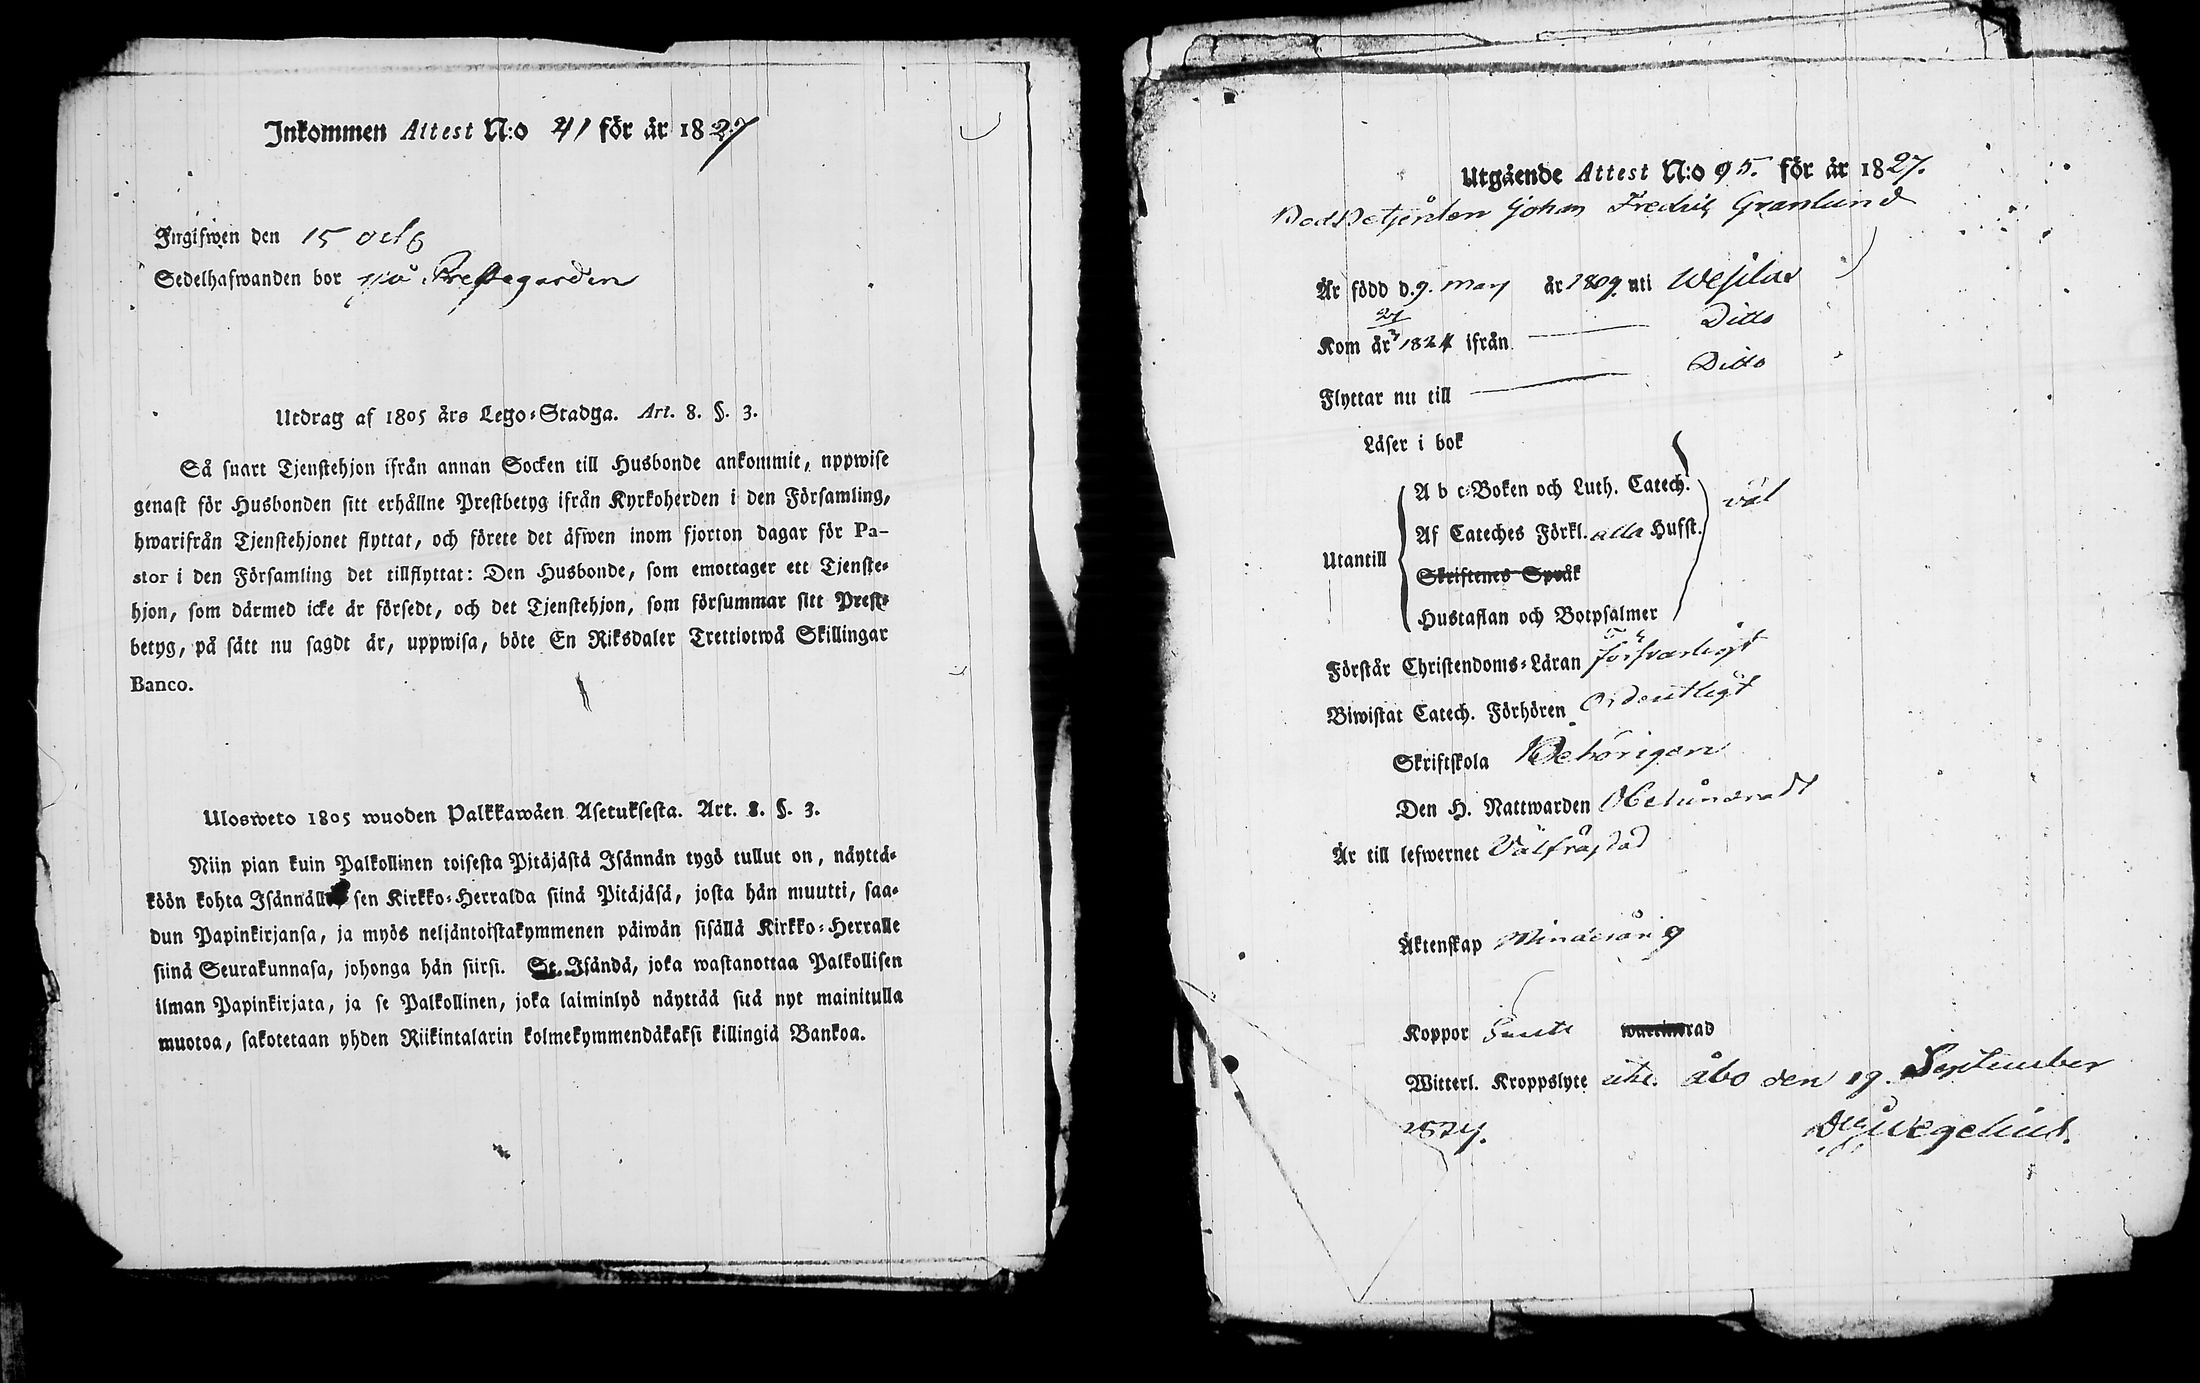 Inkommen Attest N:o 41 för år 1827
Ingifwen den 15 octb
Sedelhafwanden bor på Prestegården
Utdrag af 1805 års Lego-Stadga. Art. 8. §. 3.
Så snart Tjenstehjon ifrån annan Socken till Husbonde ankommit, uppwise
genast för Husbonden sitt erhållne Prestbetyg ifrån Kyrkoherden i den Församling,
hwarifrån Tjenstehjonet flyttat, och förete det äfwen inom fjorton dagar för Pa-
stor i den Församling det tillflyttat: Den Husbonde, som emottager ett Tjenste-
hjon, som därmed icke är försedt, och det Tjenstehjon, som försummar sitt Prest-
betyg, på sätt nu sagdt är, uppwisa, böte En Riksdaler Trettiotwå Skillingar
Banco.
Ulosweto 1805 wuoden Palkkawäen Asetuksesta. Art. 8. §. 3.
Niin pian kuin Palkollinen toisesta Pitäjästä Isännän tygö tullut on, näyttä-
köön kohta Isännälle sen Kirkko-Herralda siinä Pitäjäsä, josta hän muutti, saa-
dun Papinkirjansa, ja myös neljäntoistakymmenen päiwän sisällä Kirkko-Herralle
siinä Seurakunnasa, johonga hän siirsi. Se Isändä, joka wastanottaa Palkollisen
ilman Papinkirjata, ja se Palkollinen, joka laiminlyö näyttää sitä nyt mainitulla
muotoa, sakotetaan yhden Riikintalarin kolmekymmendäkaksi killingiä Bankoa.
Utgående Attest N:o 95. för år 1827.
Bodbetjenten Johan Fredric Granlund
Är född d. 9. May år 1809 uti Wesilax
Kom år 1824 ifrån Ditto
Flyttar nu till Ditto
Läser i bok
A b c-Boken och Luth. Catech. väl
Af Cateches Förkl. alla Hufst.
Utantill
Skriftenes Språk
Hustaflan och Botpsalmer
Förstår Christendoms-Läran försvarligt
Biwistat Catech. Förhören Ordentligt
Skriftskola Behörigen
Den H. Nattwarden Obehindradt
Är till lefwernet Välfräjdad
Äktenskap Minderårig
Koppor haft rad
Witterl. Kroppslyte utan. Åbo den 19. September
1827. Wegelius.